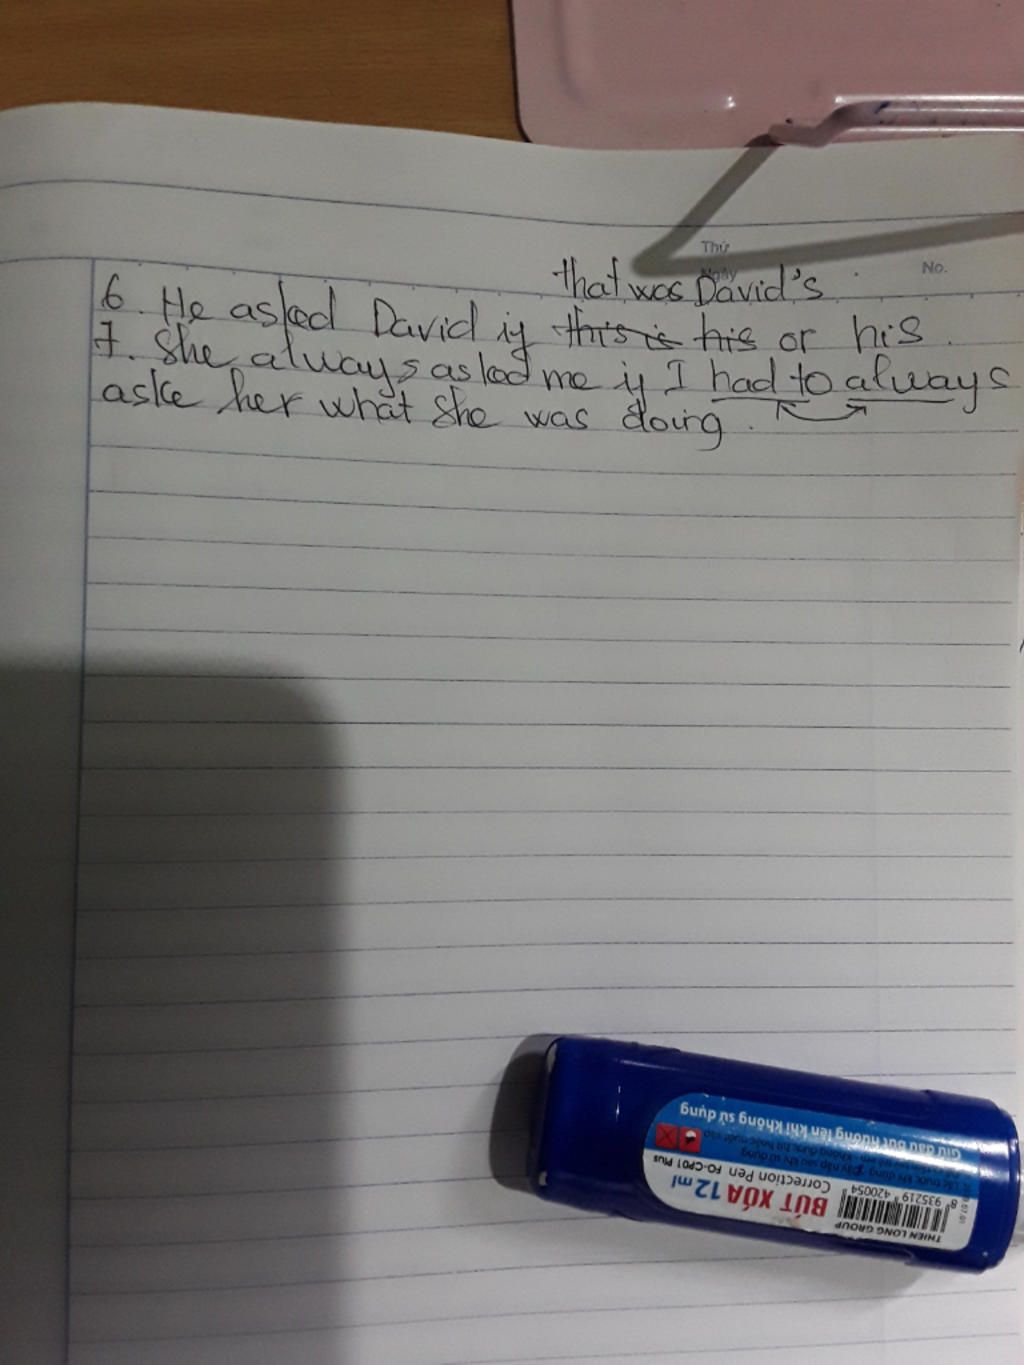 Thứ
Ngày
No.
that was David's
6. He asked David if this is his or his.
7. She always asked me if I had to always
aske her what she was doing.
Giữ đầu bút hướng lên khi không sử dụng
Correction Pen FO-CP01 Plus
BÚT XÓA 12ml
8 935219 420054
THIEN LONG GROUP